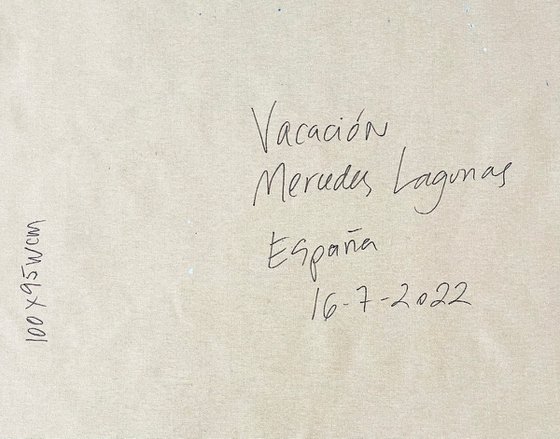 Vacación
Mercedes Lagunas
España
16-7-2022
100 x 95 w cm